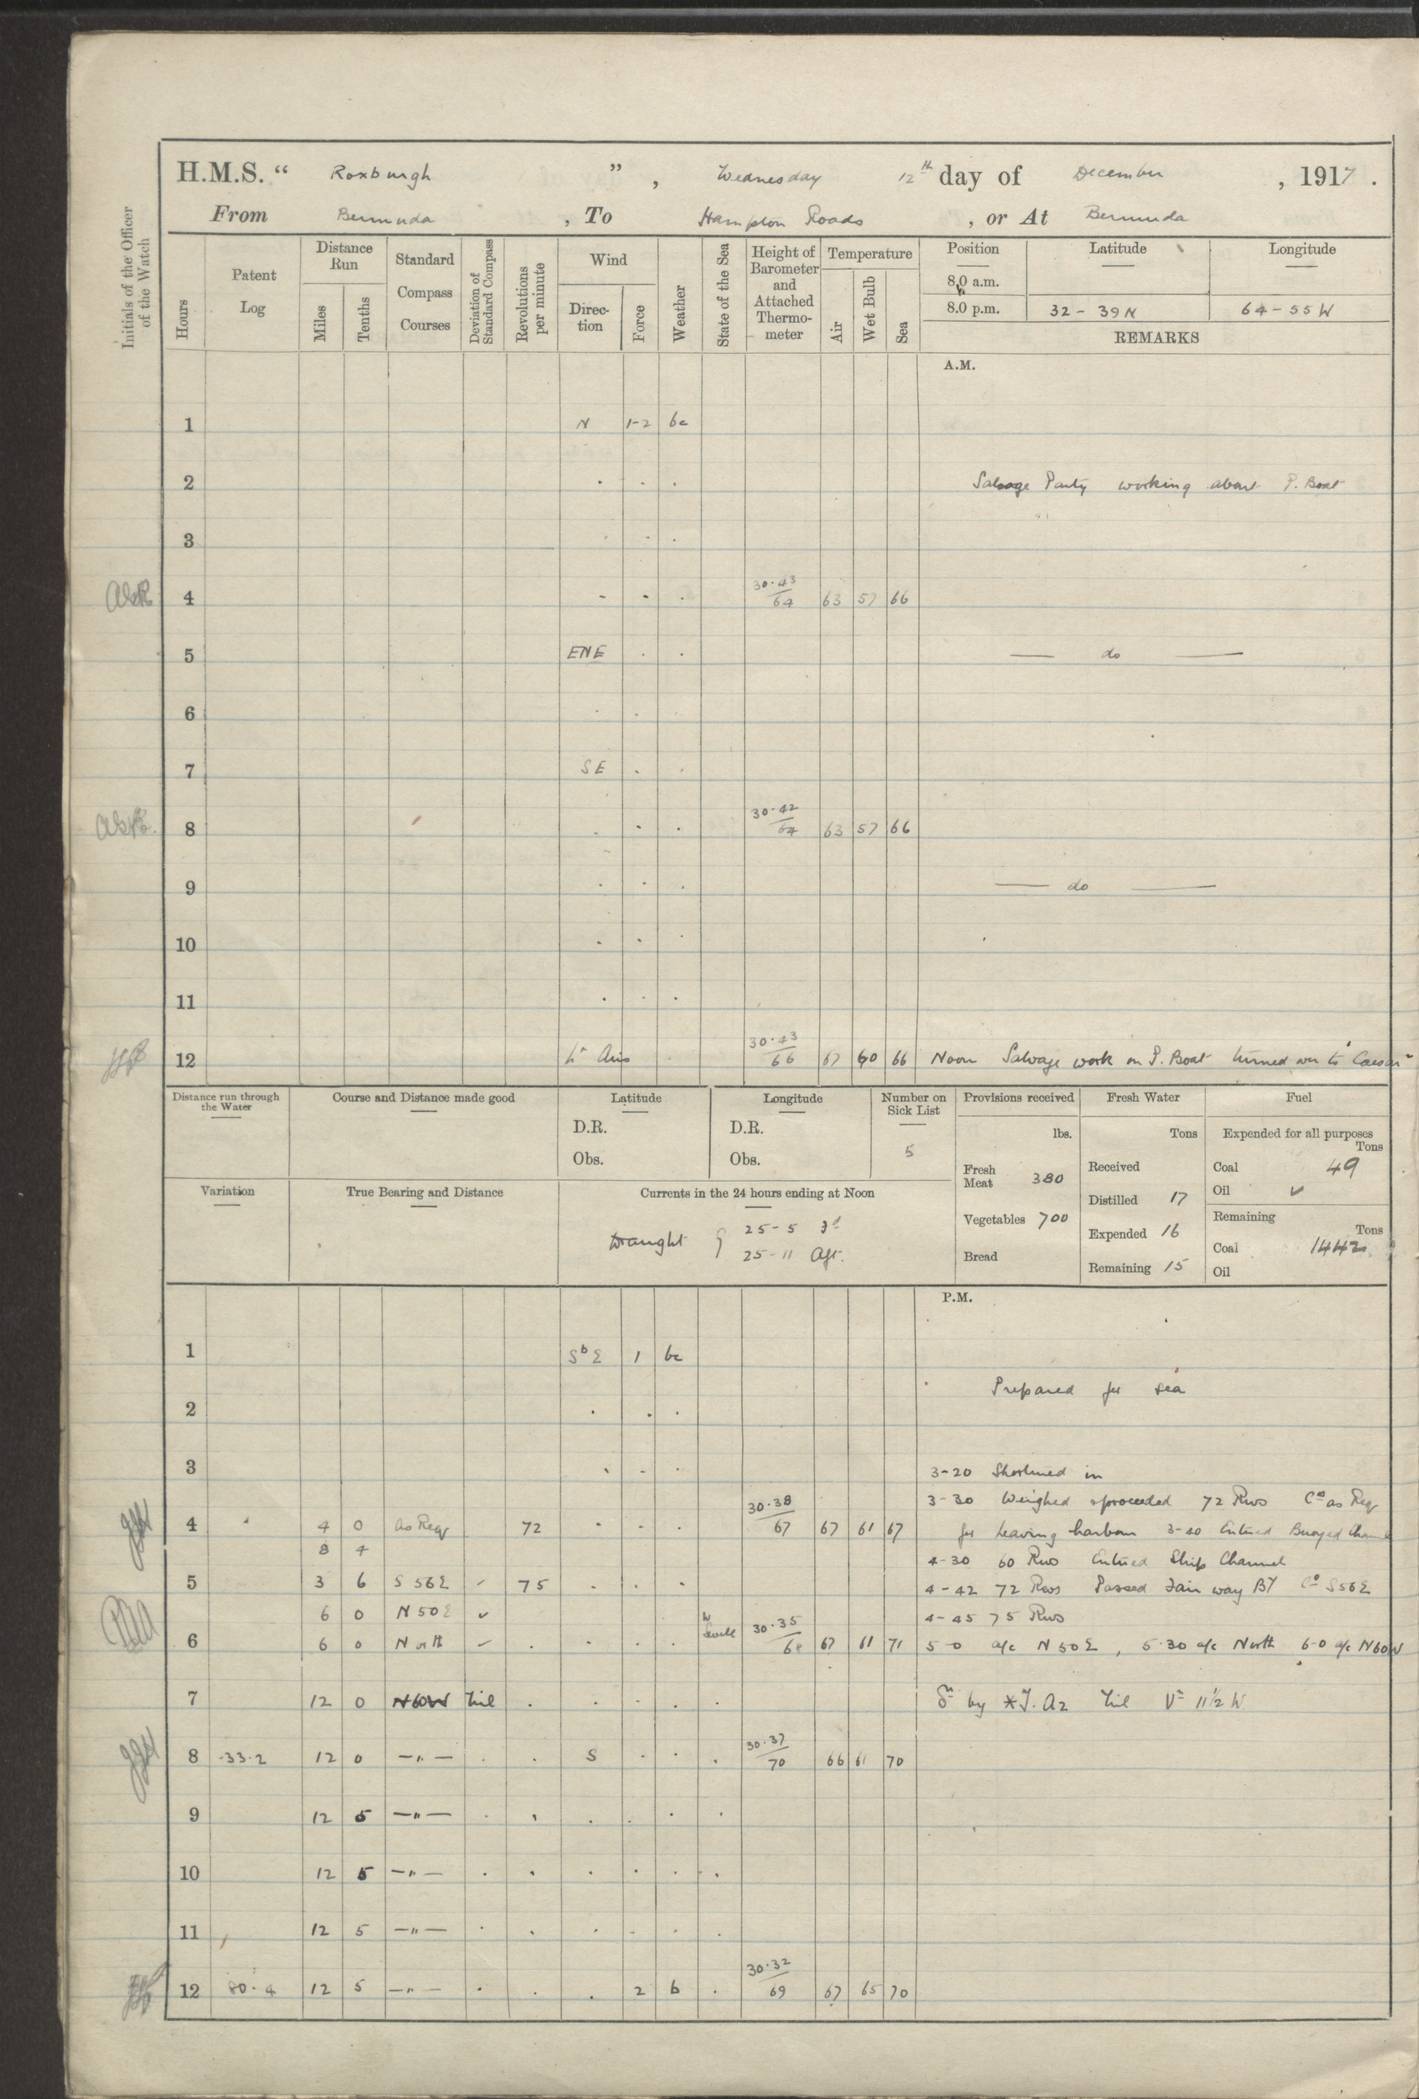 H.M.S. " Roxburgh ", Wednesday 12th day of December, 1917.
From Bermuda, To Hampton Roads, or At Bermuda
Initials of the Officer of the Watch
Hours
Patent Log
Distance Run
Miles
Tenths
Standard Compass Courses
Deviation of Standard Compass
Revolutions per minute
Wind
Direc-tion
Force
Weather
State of the Sea
Height of Barometer and Attached Thermo-meter
Temperature
Air
Wet Bulb
Sea
Position Latitude Longitude
8.0 a.m.
8.0 p.m. 32 - 39 N 64 - 55 W
REMARKS
A.M.
1 N 1-2 bc
2 . . . Salvage Party working about P. Boat
3 . . .
4 - . . 30.43/64 63 57 66
5 ENE . . — do —
6 . .
7 SE . .
8 . . . 30.42/64 63 57 66
9 . . . — do —
10 . . .
11 . . .
12 Lt Airs 30.43/66 67 60 66 Noon Salvage work on P. Boat turned over to "Caesar"
Distance run through the Water
Course and Distance made good
Latitude
D.R.
Obs.
Longitude
D.R.
Obs.
Number on Sick List
5
Provisions received
lbs.
Fresh Meat 380
Vegetables 700
Bread
Fresh Water
Tons
Received
Distilled 17
Expended 16
Remaining 15
Fuel
Expended for all purposes
Tons
Coal 49
Oil ✓
Remaining
Tons
Coal 1442
Oil
Variation
True Bearing and Distance
Currents in the 24 hours ending at Noon
Draught 25-5 Fd
25-11 Aft.
P.M.
1 SbE 1 bc
Prepared for sea
2 . . .
3 . - . 3-20 Shortened in
3-30 Weighed & proceeded 72 Revs Co as Req
4 4 0 as Req 72 . . . 30.38/67 67 61 67 for leaving harbour 3-40 Entered Buoyed Channel
8 4 4-30 60 Revs Entered Ship Channel
5 3 6 S 56 E ✓ 75 . . . 4-42 72 Revs Passed Fair way By Co S56E
6 0 N 50 E ✓ 4-45 75 Revs
6 6 0 North ✓ . . . . W Swell 30.35/68 67 61 71 5-0 a/c N 50 E, 5.30 a/c North 6-0 a/c N60W
7 12 0 N60W Nil . . . . . δn by *T. Az Nil Vn 11½ W
8 33.2 12 0 —"— . . S . . . 30.37/70 66 61 70
9 12 5 —"— . . . . . .
10 12 5 —"— . . . . . .
11 12 5 —"— . . . . . .
12 80.4 12 5 —"— . . . 2 b . 30.32/69 67 65 70